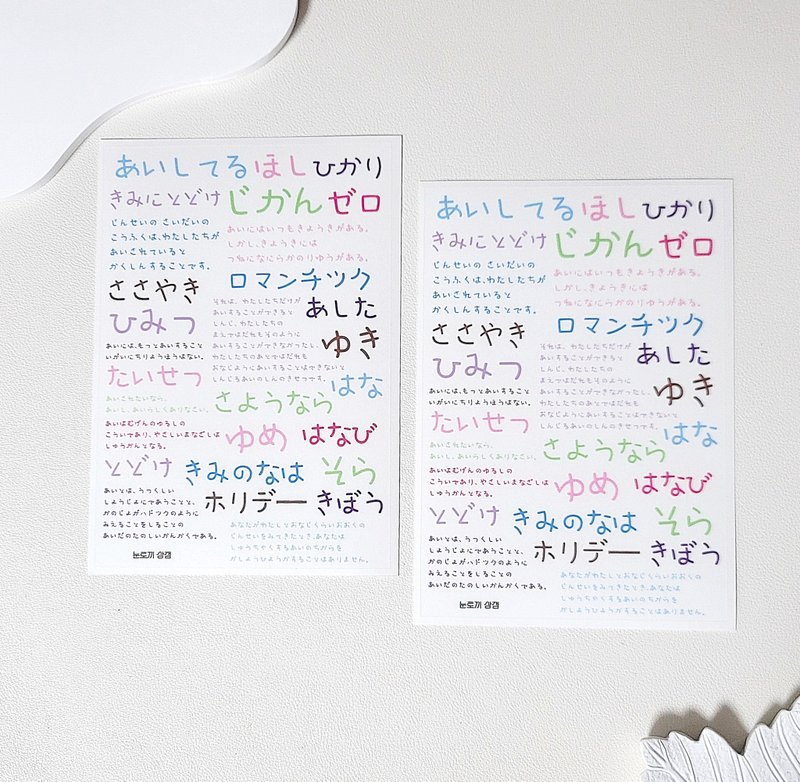 あいしてる ほし ひかり
きみにとどけ じかん ゼロ
じんせいの さいだいの
こうふくは、わたしたちが
あいされていると
かくしんすることです。
あいにはいつもきょうきがある。
しかし、きょうきには
つねになにらかのりゆうがある。
ロマンチック
ささやき
ひみつ
それは、わたしたちだけが
あいすることができると
しんじ、わたしたちの
まえではだれもそのように
あいすることができなかったし、
わたしたちのあとではだれも
おなじようにあいすることはできないと
しんじるあいのしんのきせつです。
あした
ゆき
あいは、もっとあいすること
いがいにちりょうほうはない。
たいせつ
はな
あいされたいなら、
あいし、あいらしくありなさい。
さようなら
あいはむげんのゆるしの
こういであり、やさしいまなざしは
しゅうかんとなる。
ゆめ はなび
とどけ きみのなは そら
あいとは、うつくしい
しょうじょにであうことと、
かのじょがハドックのように
みえることをしることの
あいだのたのしいかんかくである。
ホリデー きぼう
あなたがわたしとおなじくらいおおくの
じんせいをみてきたとき、あなたは
しゅうちゃくするあいのちからを
かしょうひょうかすることはありません。
눈토끼 상점
あいしてる ほし ひかり
きみにとどけ じかん ゼロ
じんせいの さいだいの
こうふくは、わたしたちが
あいされていると
かくしんすることです。
あいにはいつもきょうきがある。
しかし、きょうきには
つねになにらかのりゆうがある。
ロマンチック
ささやき
ひみつ
それは、わたしたちだけが
あいすることができると
しんじ、わたしたちの
まえではだれもそのように
あいすることができなかったし、
わたしたちのあとではだれも
おなじようにあいすることはできないと
しんじるあいのしんのきせつです。
あした
ゆき
あいは、もっとあいすること
いがいにちりょうほうはない。
たいせつ
はな
あいされたいなら、
あいし、あいらしくありなさい。
さようなら
あいはむげんのゆるしの
こういであり、やさしいまなざしは
しゅうかんとなる。
ゆめ はなび
とどけ きみのなは そら
あいとは、うつくしい
しょうじょにであうことと、
かのじょがハドックのように
みえることをしることの
あいだのたのしいかんかくである。
ホリデー きぼう
あなたがわたしとおなじくらいおおくの
じんせいをみてきたとき、あなたは
しゅうちゃくするあいのちからを
かしょうひょうかすることはありません。
눈토끼 상점